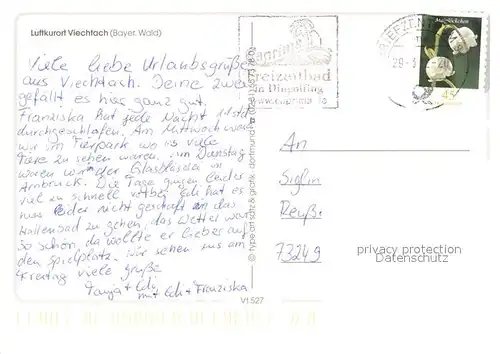 Luftkurort Viechtach (Bayer. Wald)
Viele liebe Urlaubsgrüße
aus Viechtach. Deine zwei
gefällt es hier ganz gut.
Franziska hat jede Nacht 11 std
durchgeschlafen. Am Mittwoch waren
wir im Tierpark wo es viele
Tiere zu sehen waren, im Dienstag
waren wir der Glasbläserei in
Arnbruck. Die Tage gingen leider
viel zu schnell vorbei. Edi hat es
leider nicht geschafft in das
Hallenbad zu gehen, das Wetter war
so schön, da wollte er lieber auf
den Spielplatz. Wir sehen uns am
Freitag viele grüße
Tanja + Edi
mit Edi + Franziska
caprima
Freizeitbad
in Dingolfing
www.caprima.de
BRIEFZENTRUM
29.-3
45
© typeart satz & grafik, dortmund
V1.527
An
Siglin
Reuß
73249
privacy protection
Datenschutz